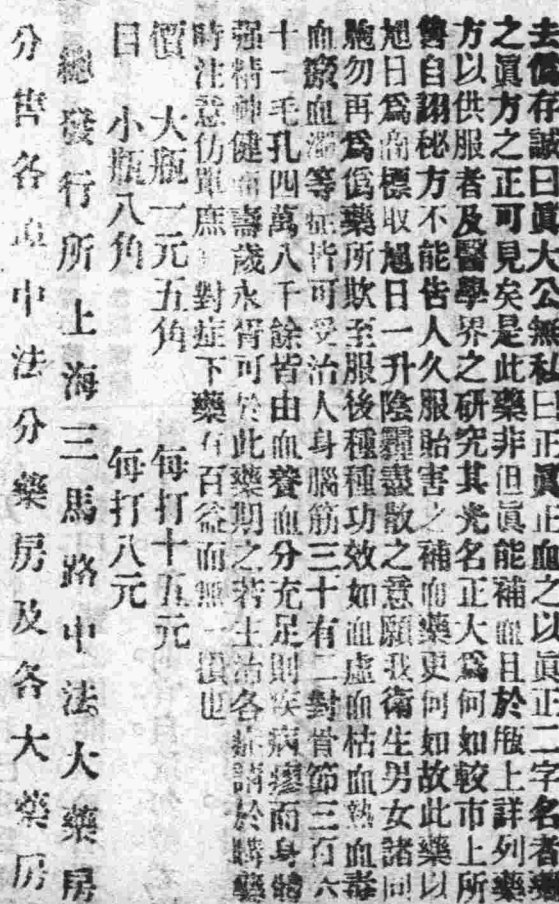 去僞存誠曰眞大公無私曰正眞正血之以眞正二字名者藥
之眞方之正可見矣是此藥非但眞能補血且於瓶上詳列藥
方以供服者及醫學界之研究其光名正大爲何如較市上所
售自詡秘方不能告人久服貽害之補血藥更何如故此藥以
旭日爲商標取旭日一升陰霾盡散之意願我衛生男女諸同
胞勿再爲僞藥所欺至服後種種功效如血虛血枯血熱血毒
血瘀血濁等症皆可受治人身腦筋三十有二對骨節三百六
十一毛孔四萬八千餘皆由血養血分充足則疾病瘳而身體
强精神健而壽歲永胥可於此藥期之若主治各症請於購藥
時注意仿單庶對症下藥有百益而無一損也
價 大瓶一元五角 每打十五元
目 小瓶八角 每打八元
總發行所上海三馬路中法大藥房
分售各埠中法分藥房及各大藥房